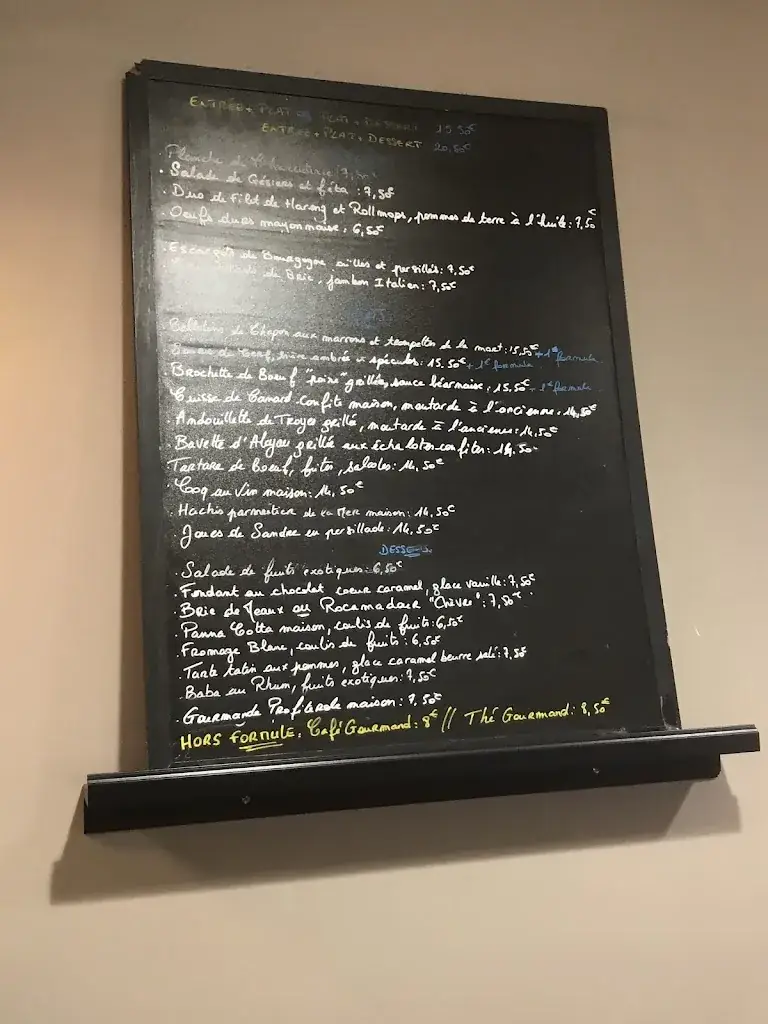 ENTRÉE + PLAT OU PLAT + DESSERT 15.50€
ENTRÉE + PLAT + DESSERT 20.50€
Planche de Charcuterie : 7,50€
. Salade de Gésiers et féta : 7,50€
. Duo de Filet de Hareng et Rollmops, pommes de terre à l'huile : 7,50€
. Oeufs durs mayonnaise : 6,50€
. Escargots de Bourgogne aillés et persillés : 7,50€
de Brie, jambon Italien : 7,50€
Ballotine de Chapon aux marrons et trompettes de la mort : 15,50€ + 1€ formule
de Cerf, bière ambrée et spéculos : 15.50€ + 1€ formule
Brochette de Boeuf "poire" grillée, sauce béarnaise : 15.50€ + 1€ formule
. Cuisse de Canard confite maison, moutarde à l'ancienne : 14,50€
. Andouillette de Troyes grillée, moutarde à l'ancienne : 14,50€
. Bavette d'Aloyau grillée aux échalotes confites : 14.50€
Tartare de Boeuf, frites, salades : 14,50€
. Coq au Vin maison : 14,50€
. Hachis parmentier de la Mer maison : 14,50€
. Joues de Sandre en persillade : 14,50€
DESSERTS
. Salade de fruits exotiques : 6,50€
. Fondant au chocolat coeur caramel, glace vanille : 7,50€
. Brie de Meaux ou Rocamadour "Chèvre" : 7,50€
. Panna Cotta maison, coulis de fruits : 6,50€
. Fromage Blanc, coulis de fruits : 6,50€
. Tarte tatin aux pommes, glace caramel beurre salé : 7,50€
. Baba au Rhum, fruits exotiques : 7,50€
. Gourmande Profiterole maison : 7,50€
HORS FORMULE : Café Gourmand : 8€ // Thé Gourmand : 8,50€